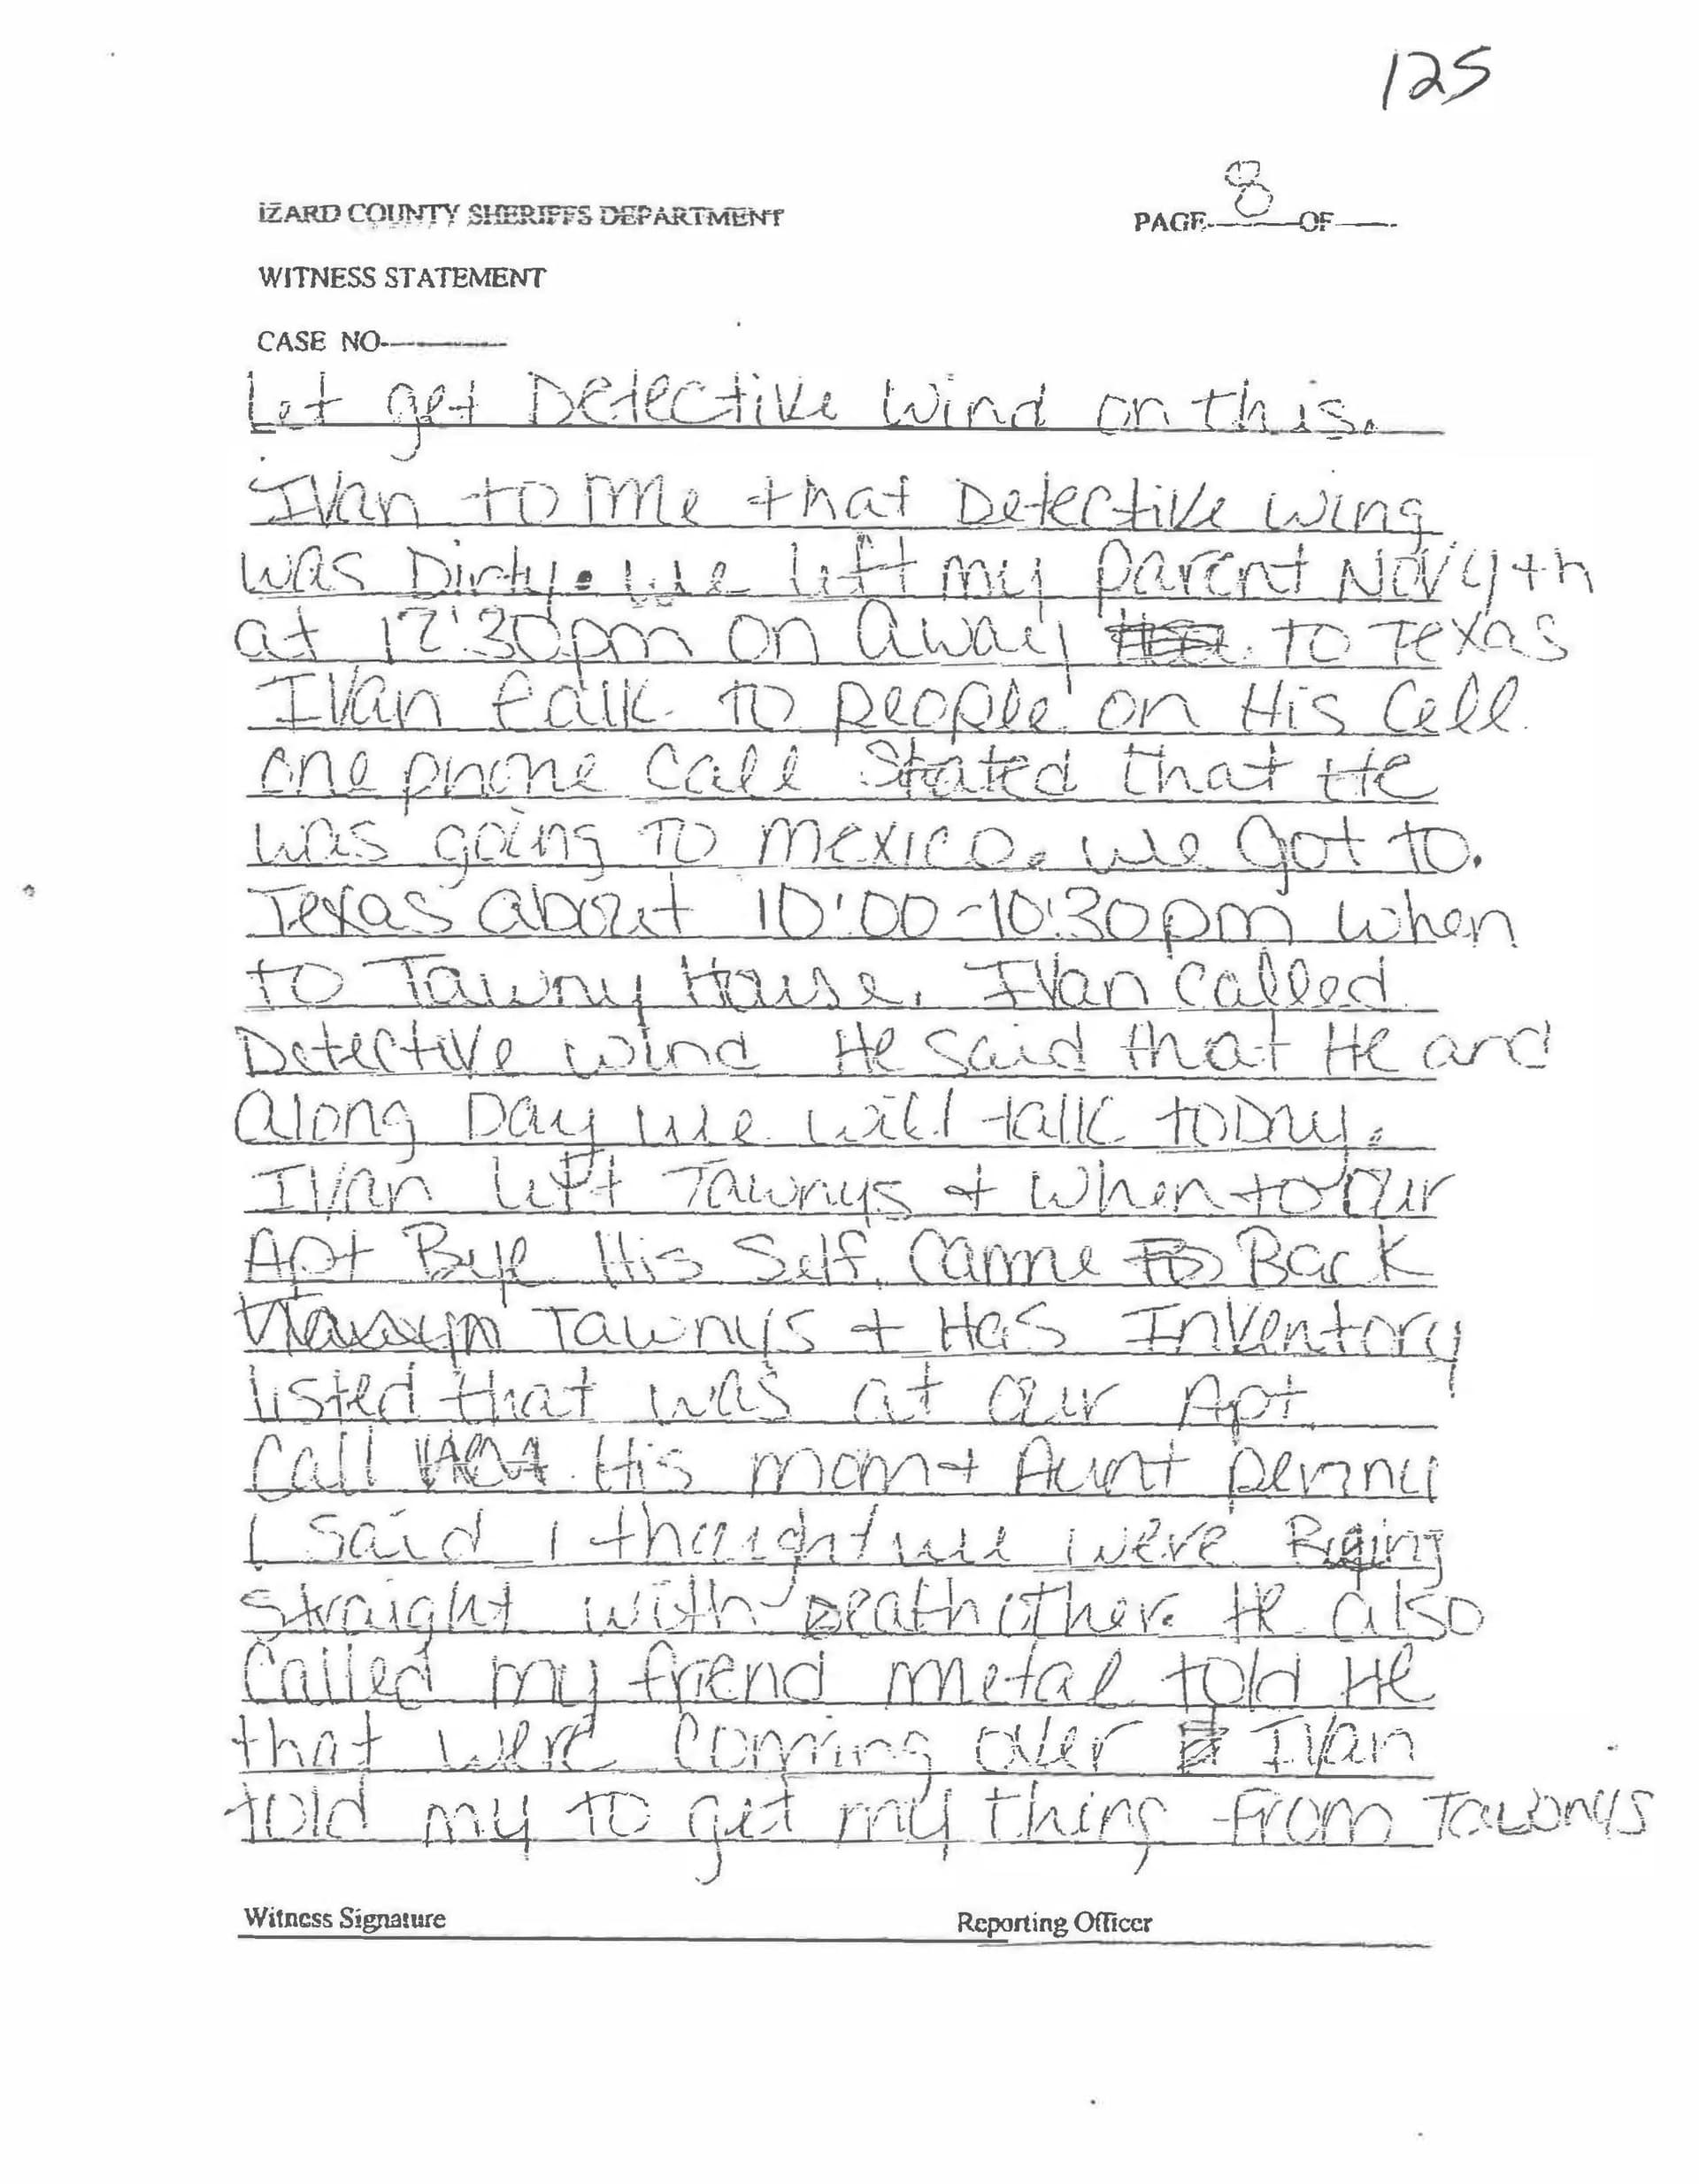 125
IZARD COUNTY SHERIFFS DEPARTMENT PAGE 8 OF
WITNESS STATEMENT
CASE NO
Let get Detective Wind on this.
Ivan to me that Detective Wing
was Dirty. We left my parent Nov 4th
at 12:30pm on Away to Texas
Ivan talk to people on His Cell
one phone call Stated that He
was going to Mexico. we got to.
Texas about 10:00-10:30pm when
to Tawny House. Ivan called
Detective Wind He said that He and
along Day we will talk today.
Ivan left Tawnys + When to Our
Apt Bye His Self. Came Back
Tawnys + Has Inventory
listed that was at our Apt.
Call His mom + Aunt penny
I said I thought we were
straight with eachother. He also
Called my friend metal told He
that were comming over Ivan
told my to get my thing from Tawnys
Witness Signature Reporting Officer